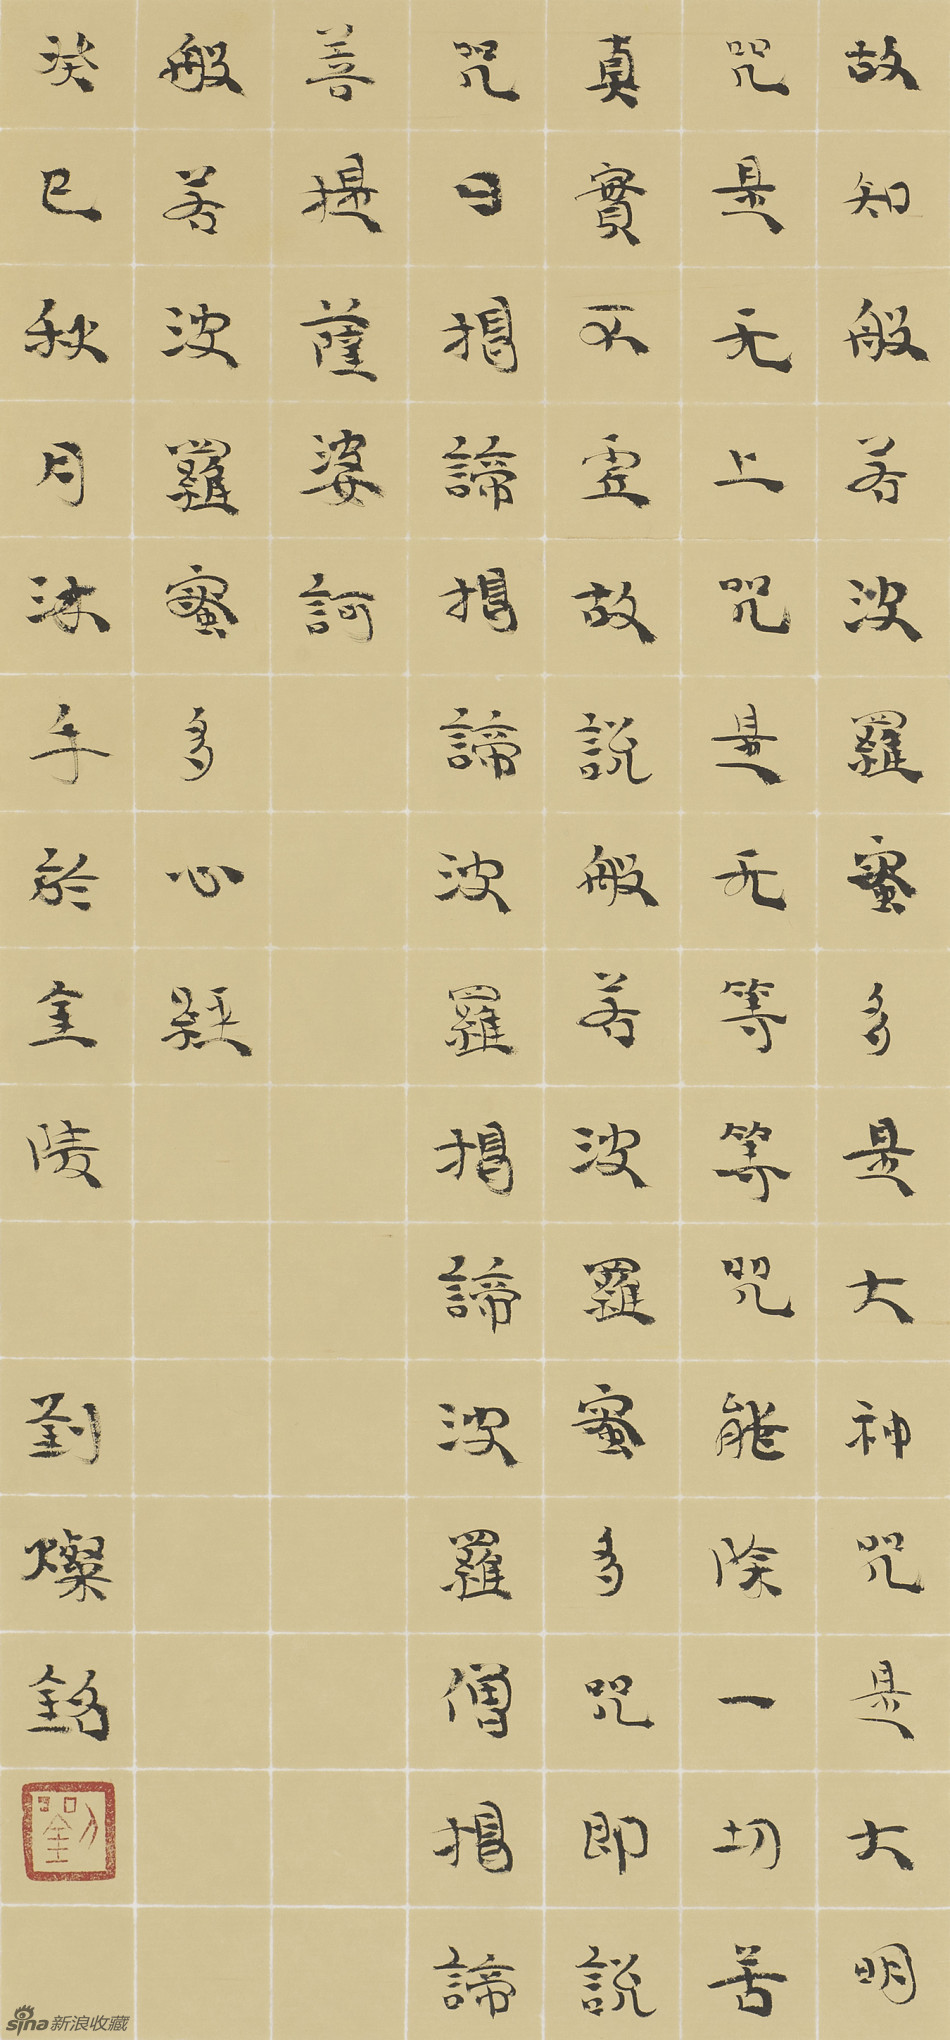 故知般若波羅蜜多是大神咒是大明
咒是无上咒是无等等咒能除一切苦
真實不虛故說般若波羅蜜多咒即說
咒曰揭諦揭諦波羅揭諦波羅僧揭諦
菩提薩婆訶
般若波羅蜜多心經
癸巳秋月沐手於金陵 劉燦銘
劉
sina新浪收藏